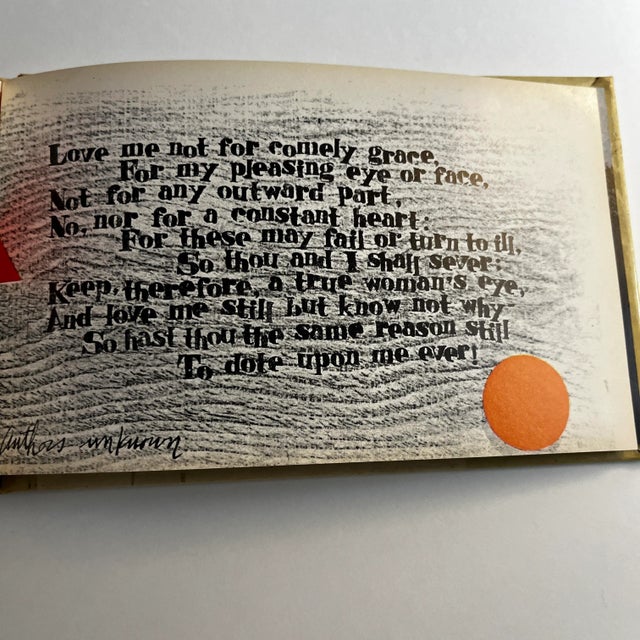 Love me not for comely grace,
For my pleasing eye or face,
Not for any outward part,
No, nor for a constant heart:
For these may fail or turn to ill,
So thou and I shall sever:
Keep, therefore, a true woman's eye,
And love me still but know not why
So hast thou the same reason still
To dote upon me ever!
Authors unknown